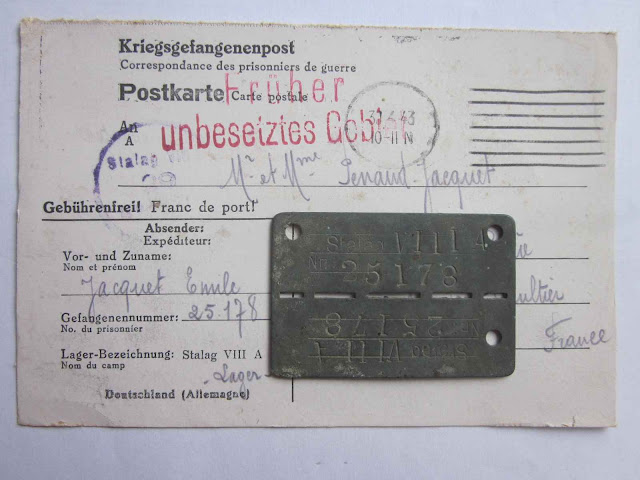 Kriegsgefangenenpost
Correspondance des prisonniers de guerre
Postkarte Carte postale
Früher
unbesetztes Gebiet
10-11 N
An
A
Stalag
29
Mr et Mme Penaud-Jacquet
Gebührenfrei! Franc de port!
Absender:
Expéditeur:
Vor- und Zuname:
Nom et prénom
Jacquet Emile
Gefangenennummer: 25.178
No. du prisonnier
Lager-Bezeichnung: Stalag VIII A
Nom du camp
-Lager-
Deutschland (Allemagne)
France
Stalag VIII A
Nr. 25178
Nr. 25178
Stalag VIII A